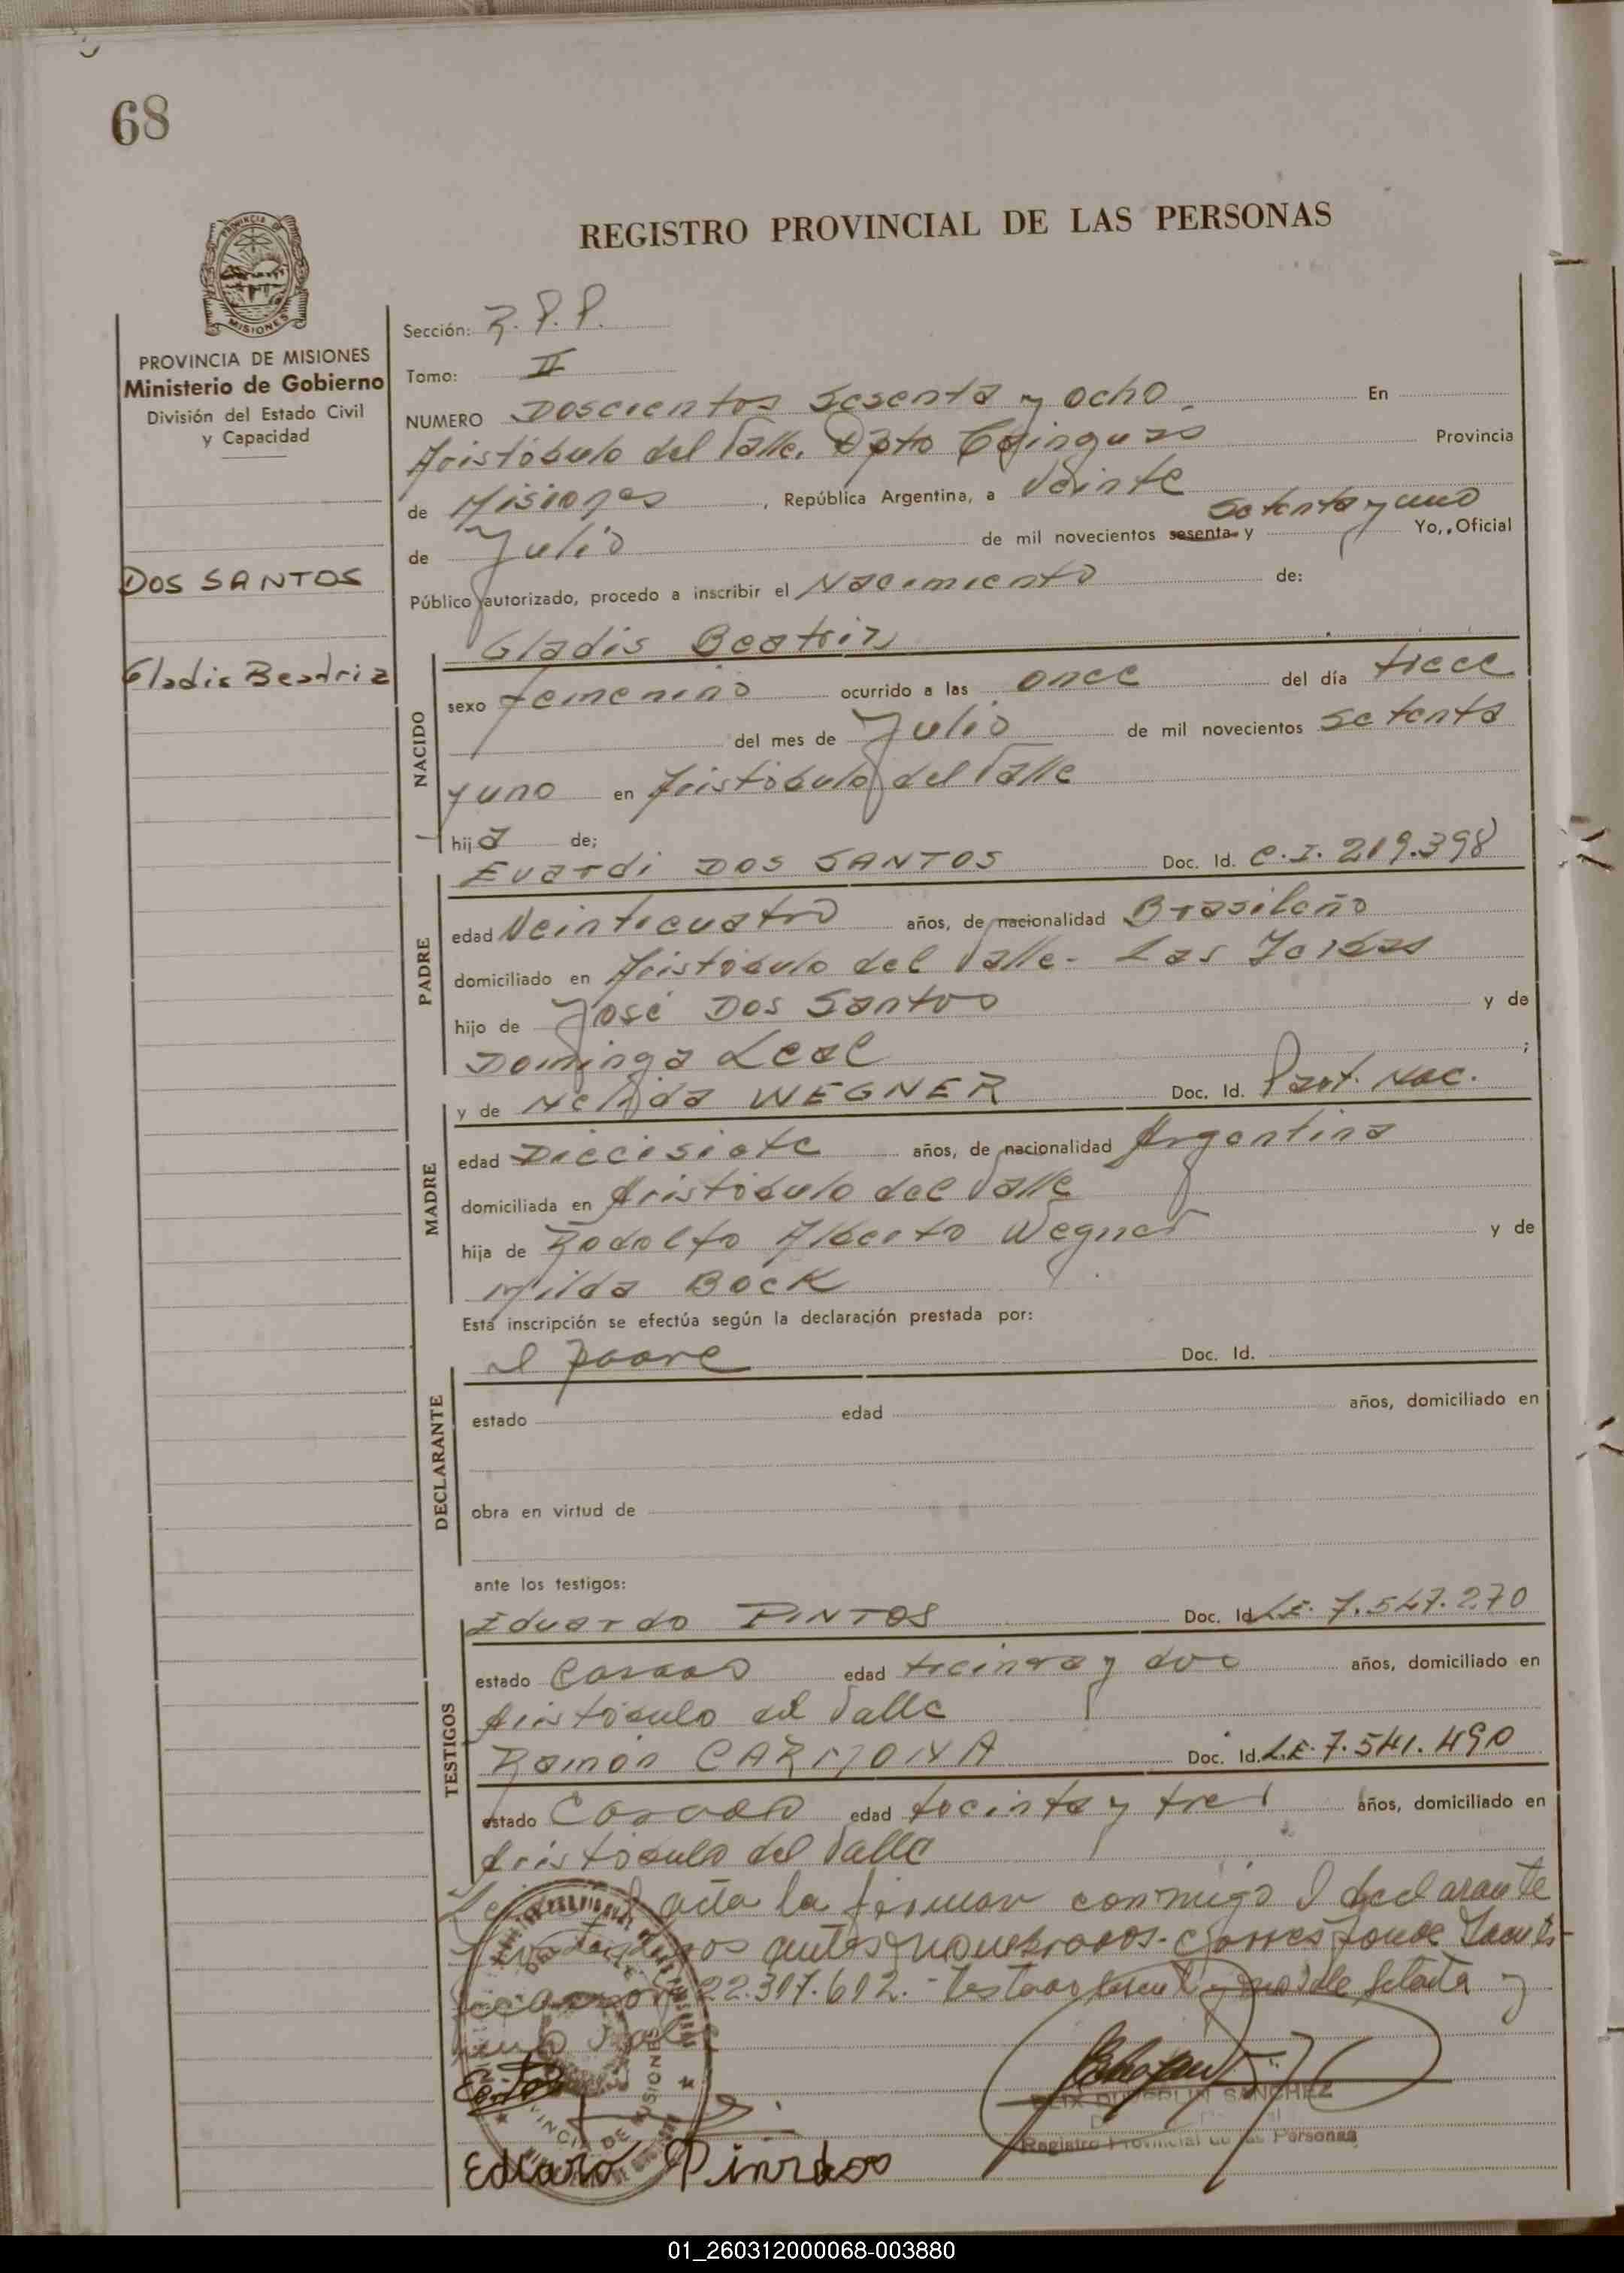 68
REGISTRO PROVINCIAL DE LAS PERSONAS
PROVINCIA
MISIONES
PROVINCIA DE MISIONES
Ministerio de Gobierno
División del Estado Civil
y Capacidad
DOS SANTOS
Gladis Beatriz
Sección: R.P.P.
Tomo: II
NUMERO Doscientos Sesenta y ocho. En
Aristóbulo del Valle. Dpto Cainguas Provincia
de Misiones, República Argentina, a Veinte
setenta y uno
de Julio de mil novecientos sesenta y Yo, Oficial
Público autorizado, procedo a inscribir el Nacimiento de:
Gladis Beatriz
NACIDO
sexo femenino ocurrido a las once del día trece
del mes de Julio de mil novecientos setenta
y uno en Aristóbulo del Valle
hija de;
Evardi DOS SANTOS Doc. Id. C.I. 219.398
PADRE
edad Veinticuatro años, de nacionalidad Brasileño
domiciliado en Aristóbulo del Valle - Las Yerbas
hijo de José Dos Santos y de
Dominga Leal ;
y de Nelida WEGNER Doc. Id. Part. Nac.
MADRE
edad Diecisiete años, de nacionalidad Argentina
domiciliada en Aristóbulo del Valle
hija de Rodolfo Alberto Wegner y de
Milda BOCK
Esta inscripción se efectúa según la declaración prestada por:
el padre Doc. Id.
DECLARANTE
estado edad años, domiciliado en
obra en virtud de
ante los testigos:
Eduardo PINTOS Doc. Id. L.E. 7.547.270
TESTIGOS
estado Casado edad treinta y dos años, domiciliado en
Aristóbulo del Valle
Ramón CARMONA Doc. Id. L.E. 7.541.490
estado Casado edad treinta y tres años, domiciliado en
Aristóbulo del Valle
acta la firman conmigo el declarante
antes nombrados. Corresponde
22.317.612.- Testado vale setenta y
uno
SANCHEZ
Registro Provincial de las Personas
01_260312000068-003880